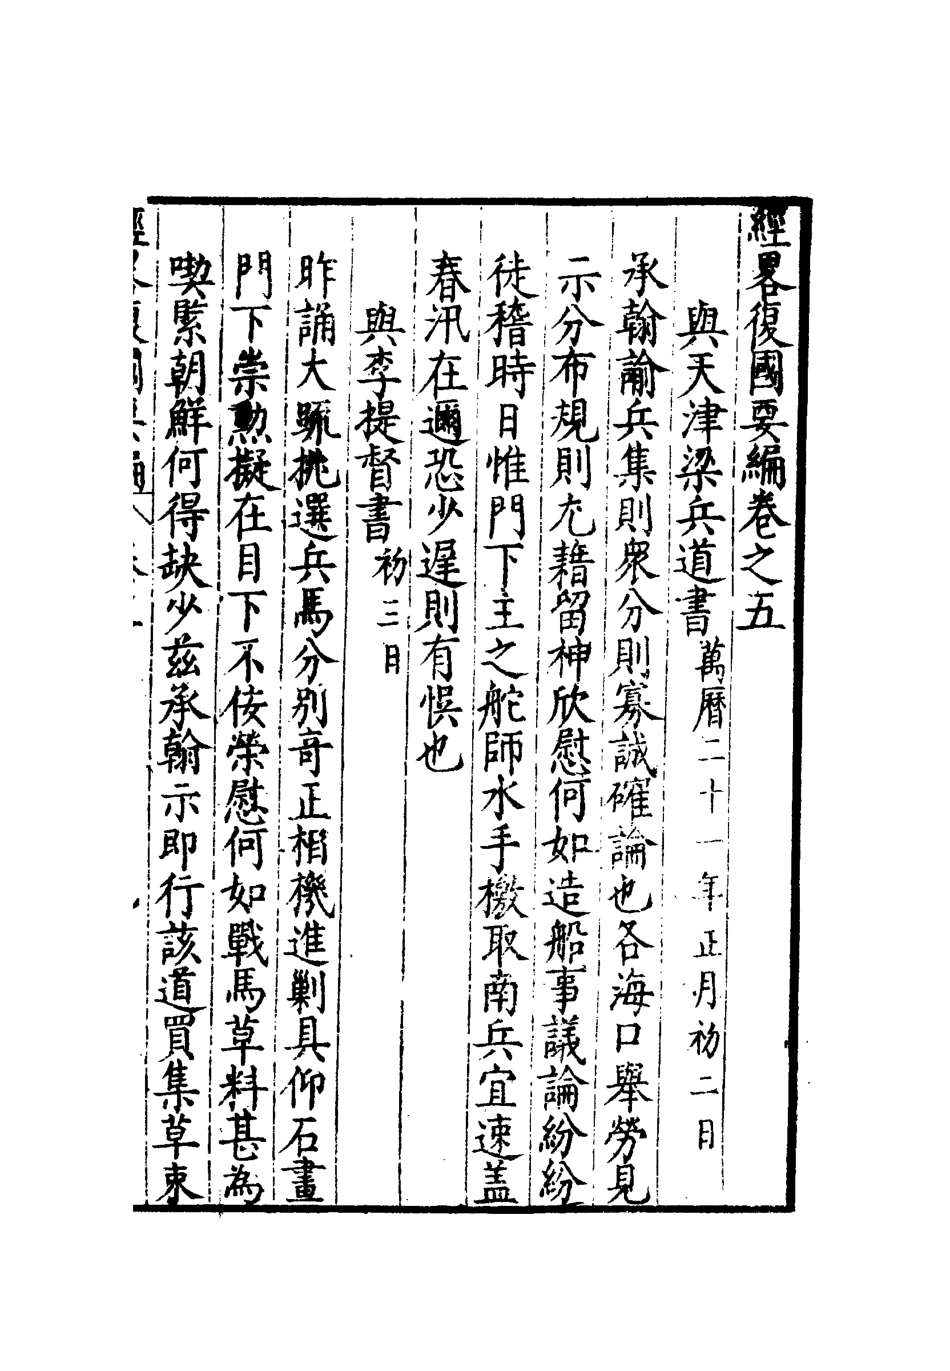 經畧復國要編卷之五
與天津梁兵道書 萬曆二十一年正月初二日
承翰諭兵集則衆分則寡誠確論也各海口舉勞見
示分布規則尤藉留神欣慰何如造船事議論紛紛
徒稽時日惟門下主之舵師水手檄取南兵宜速盖
春汛在邇恐少遲則有悞也
與李提督書 初三日
昨誦大疏挑選兵馬分别竒正相機進剿具仰石畫
門下崇勲擬在目下不佞榮慰何如戰馬草料甚為
喫緊朝鮮何得缺少兹承翰示即行該道買集草束